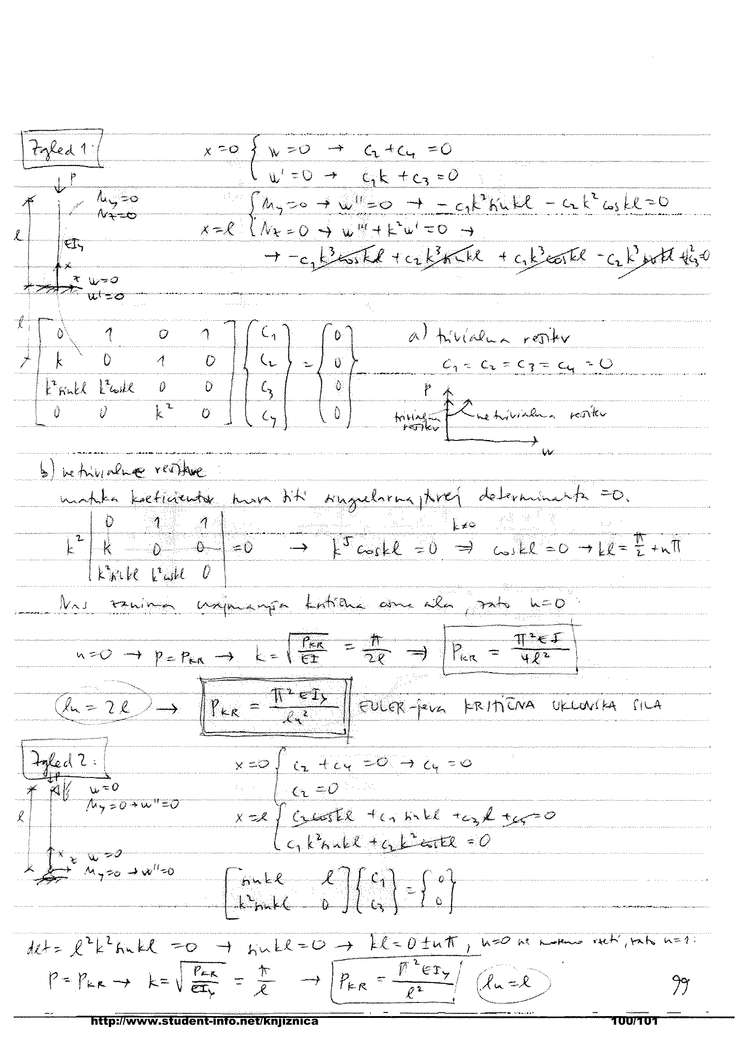 Zgled 1:
x=0 { w=0 → c₂+c₄=0
w'=0 → c₁k+c₃=0
P
My=0
Nz=0
l
EIy
x
z w=0
w'=0
x=l { My=0 → w''=0 → -c₁k² sinkl - c₂k² coskl=0
Nz=0 → w'''+k²w'=0 →
→ -c₁k³coskl + c₂k³sinkl + c₁k³coskl - c₂k³sinkl + k²c₃=0
[0 1 0 1] {c₁} = {0}
[k 0 1 0] {c₂} {0}
[k²sinkl k²coskl 0 0] {c₃} {0}
[0 0 k² 0] {c₄} {0}
a) trivialna rešitev
c₁=c₂=c₃=c₄=0
P
trivialna rešitev
netrivialna rešitev
w
b) netrivialne rešitve:
matrika koeficientov mora biti singularna, torej determinanta =0.
k² |0 1 1|
|k 0 0| =0 → k⁵coskl=0 ⇒ coskl=0 → kl=π/2+nπ
k≠0
|k²sinkl k²coskl 0|
Nas zanima najmanjša kritična osna sila, zato n=0:
n=0 → P=P_KR → k=√(P_KR/EI) = π/2l ⇒ P_KR = π²EI/4l²
lu=2l → P_KR = π²EIy/lu² EULER-jeva KRITIČNA UKLONSKA SILA
Zgled 2:
x=0 { c₂+c₄=0 → c₄=0
c₂=0
P
w=0
My=0→w''=0
l
x=l { c₂coskl + c₁sinkl + c₃l + c₄=0
c₁k²sinkl + c₂k²coskl=0
x
z w=0
My=0→w''=0
[sinkl l] {c₁} = {0}
[k²sinkl 0] {c₃} {0}
det= l²k²sinkl=0 → sinkl=0 → kl=0±nπ, n=0 ne moremo vzeti, zato n=1:
P=P_KR → k=√(P_KR/EIy) = π/l → P_KR = π²EIy/l² lu=l
99
http://www.student-info.net/knjiznica 100/101